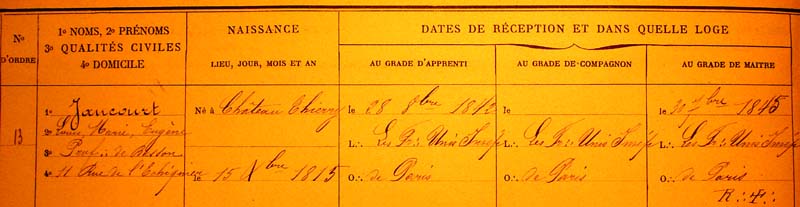 No D'ORDRE
1o NOMS, 2o PRÉNOMS
3o QUALITÉS CIVILES
4o DOMICILE
NAISSANCE
LIEU, JOUR, MOIS ET AN
DATES DE RÉCEPTION ET DANS QUELLE LOGE
AU GRADE D'APPRENTI
AU GRADE DE COMPAGNON
AU GRADE DE MAITRE
13
1o Jancourt
2o Louis Marie Eugène
3o Prof. de Basson
4o 11 Rue de l'Echiquier
Né à Château Thierry
le 15 Xbre 1815
le 28 8bre 1842
L∴ Les Fr∴ Unis Insép
O∴ de Paris
le
L∴ Les Fr∴ Unis Insép
O∴ de Paris
le 7bre 1845
L∴ Les Fr∴ Unis Insép
O∴ de Paris
R∴ ✝∴